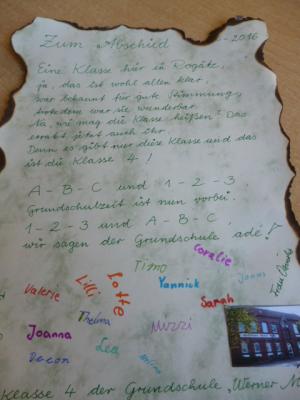 Zum Abschied - 2016
Eine Klasse hier in Rogätz,
ja, das ist wohl allen klar,
war bekannt für gute Stimmung,
trotzdem war sie wunderbar.
Na, wie mag die Klasse heißen? Das
erratet jetzt auch ihr.
Denn es gibt nur diese Klasse und das
ist die Klasse 4!
A - B - C und 1 - 2 - 3
Grundschulzeit ist nun vorbei.
1 - 2 - 3 und A - B - C
wir sagen der Grundschule adé!
Coralie
Timo
Yannick
Jonas
Frau
Valerie
Lilli
Lotte
Sarah
Thelma
Joanna
Mizzi
Lea
Deacon
Klasse 4 der Grundschule „Werner